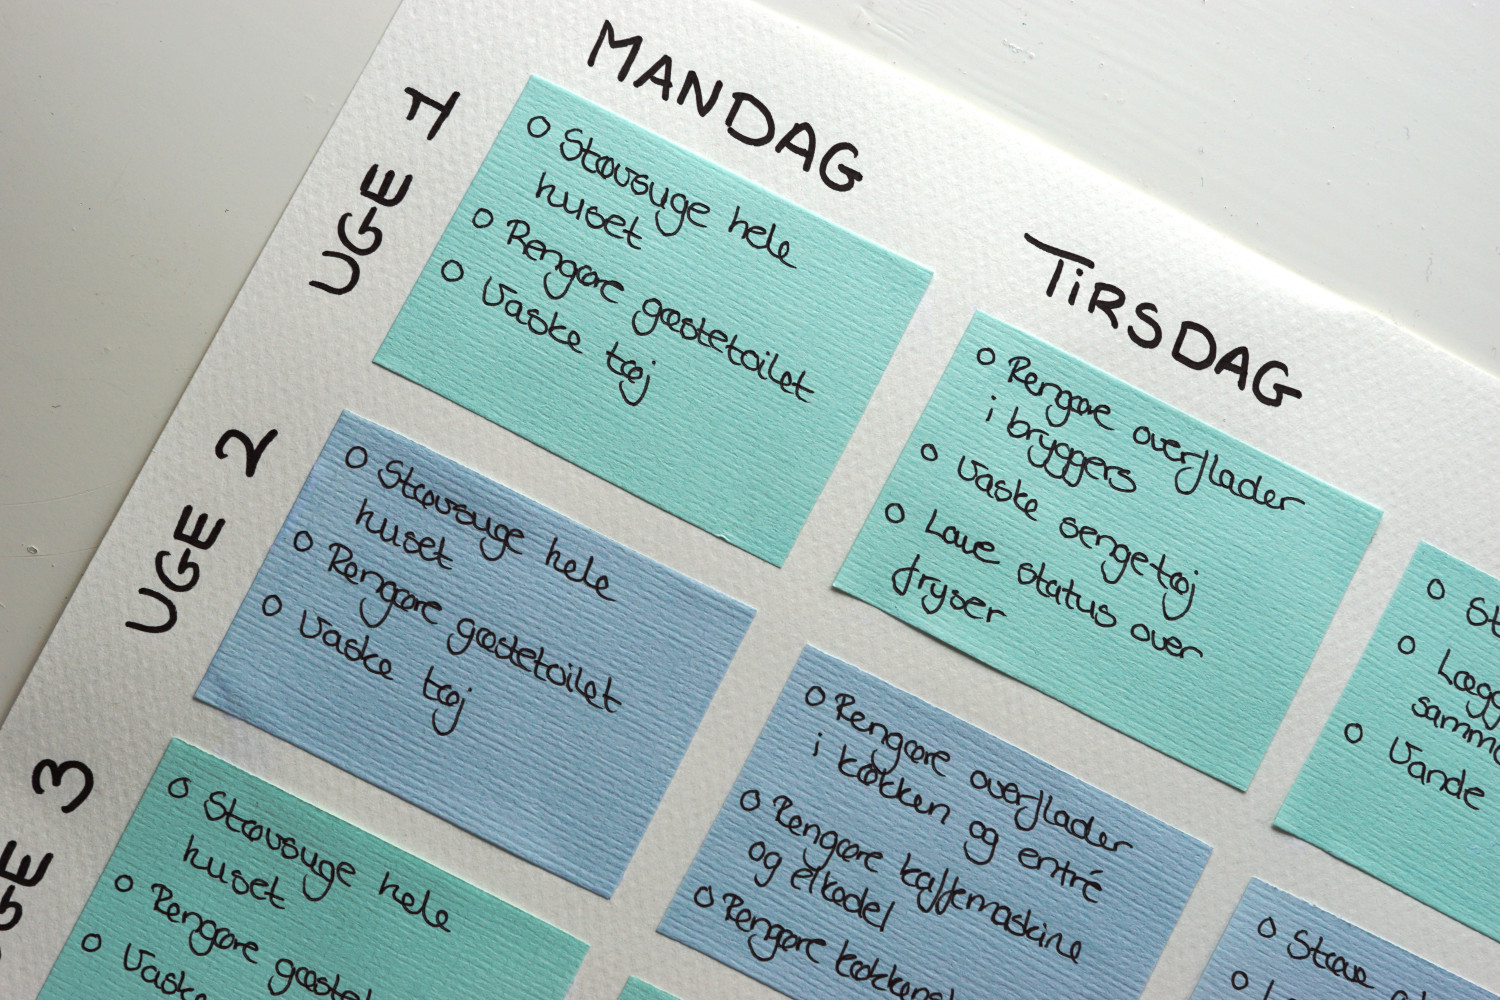 MANDAG
TIRSDAG
UGE 1
o Støvsuge hele
huset
o Rengøre gæstetoilet
o Vaske tøj
o Rengøre overflader
i bryggers
o Vaske sengetøj
o Lave status over
fryser
o
o
o Vande
UGE 2
o Støvsuge hele
huset
o Rengøre gæstetoilet
o Vaske tøj
o Rengøre overflader
i køkken og entré
o Rengøre kaffemaskine
og elkedel
o Rengøre
o Støve
o
3
o Støvsuge hele
huset
o Rengøre
o Vaske